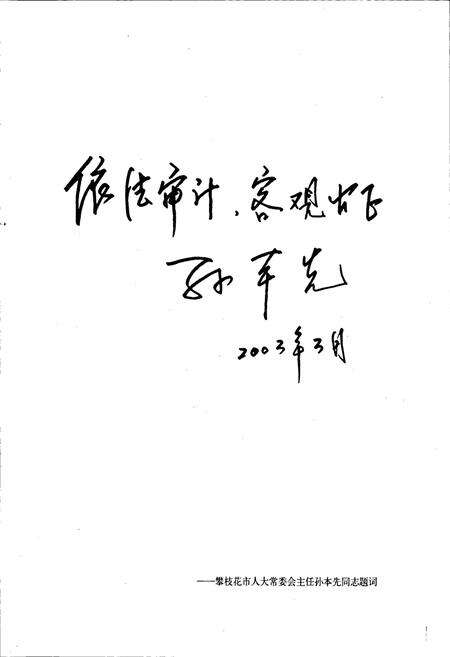 依法审计、客观公正
孙本先
2003年3月
——攀枝花市人大常委会主任孙本先同志题词